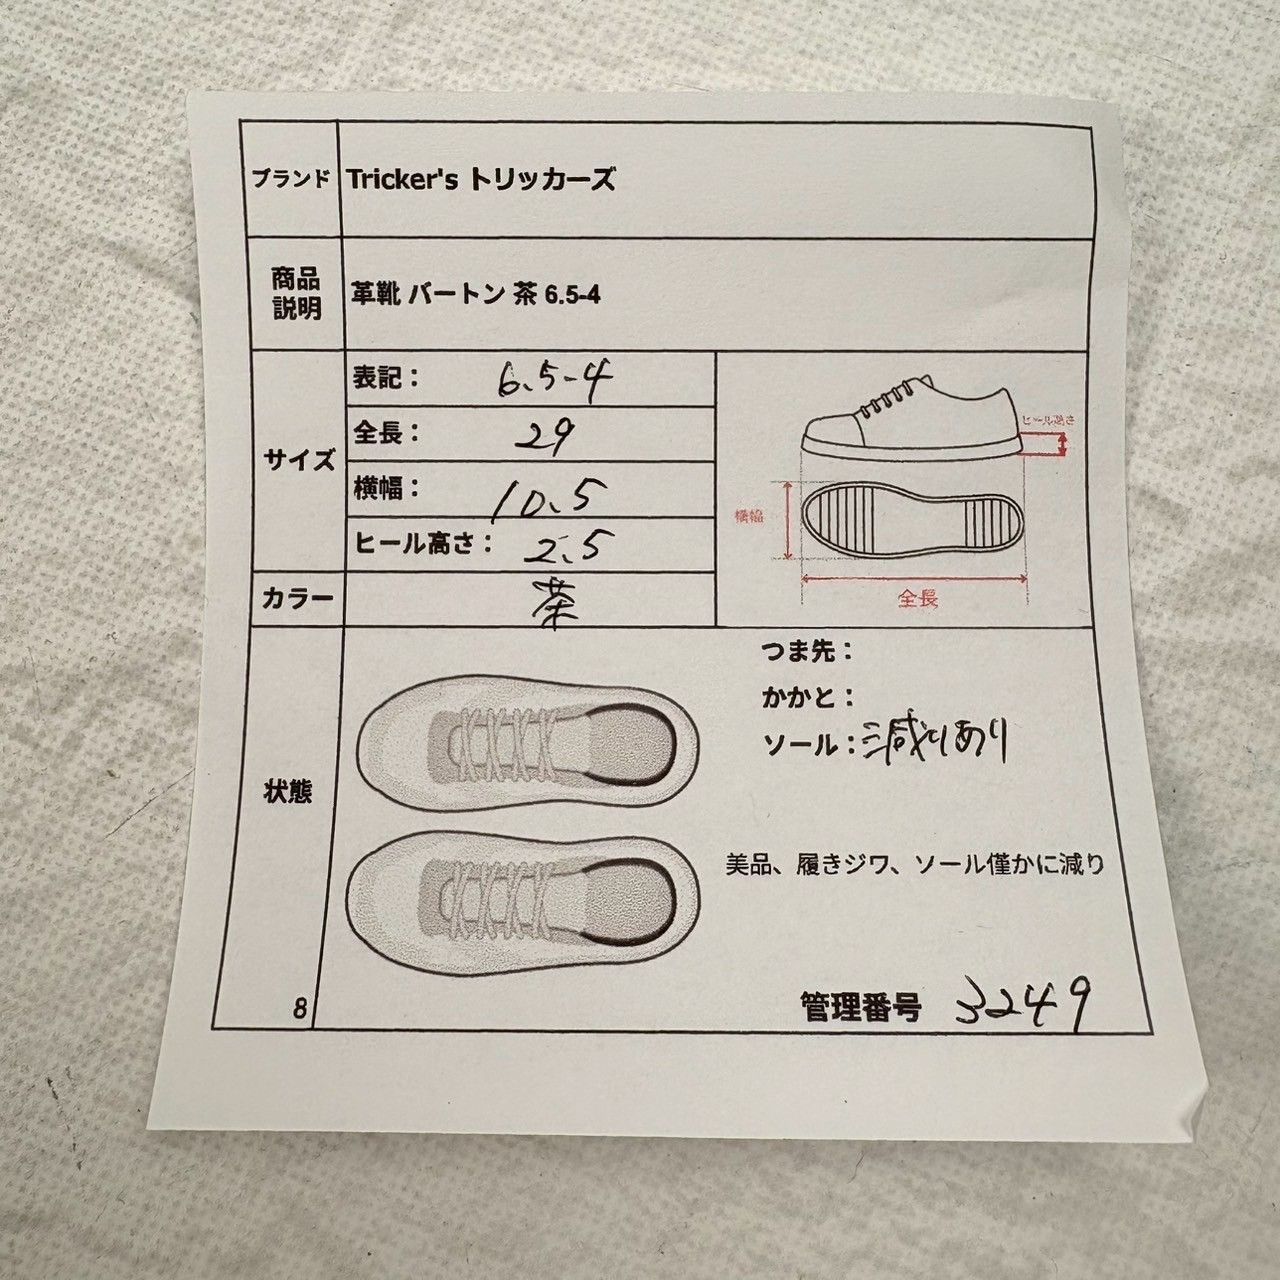 ブランド Tricker's トリッカーズ
商品説明 革靴 バートン 茶 6.5-4
サイズ
表記： 6.5-4
全長： 29
横幅： 10.5
ヒール高さ： 2.5
ヒール高さ
横幅
全長
カラー 茶
状態
つま先：
かかと：
ソール：減りあり
美品、履きジワ、ソール僅かに減り
8
管理番号 3249